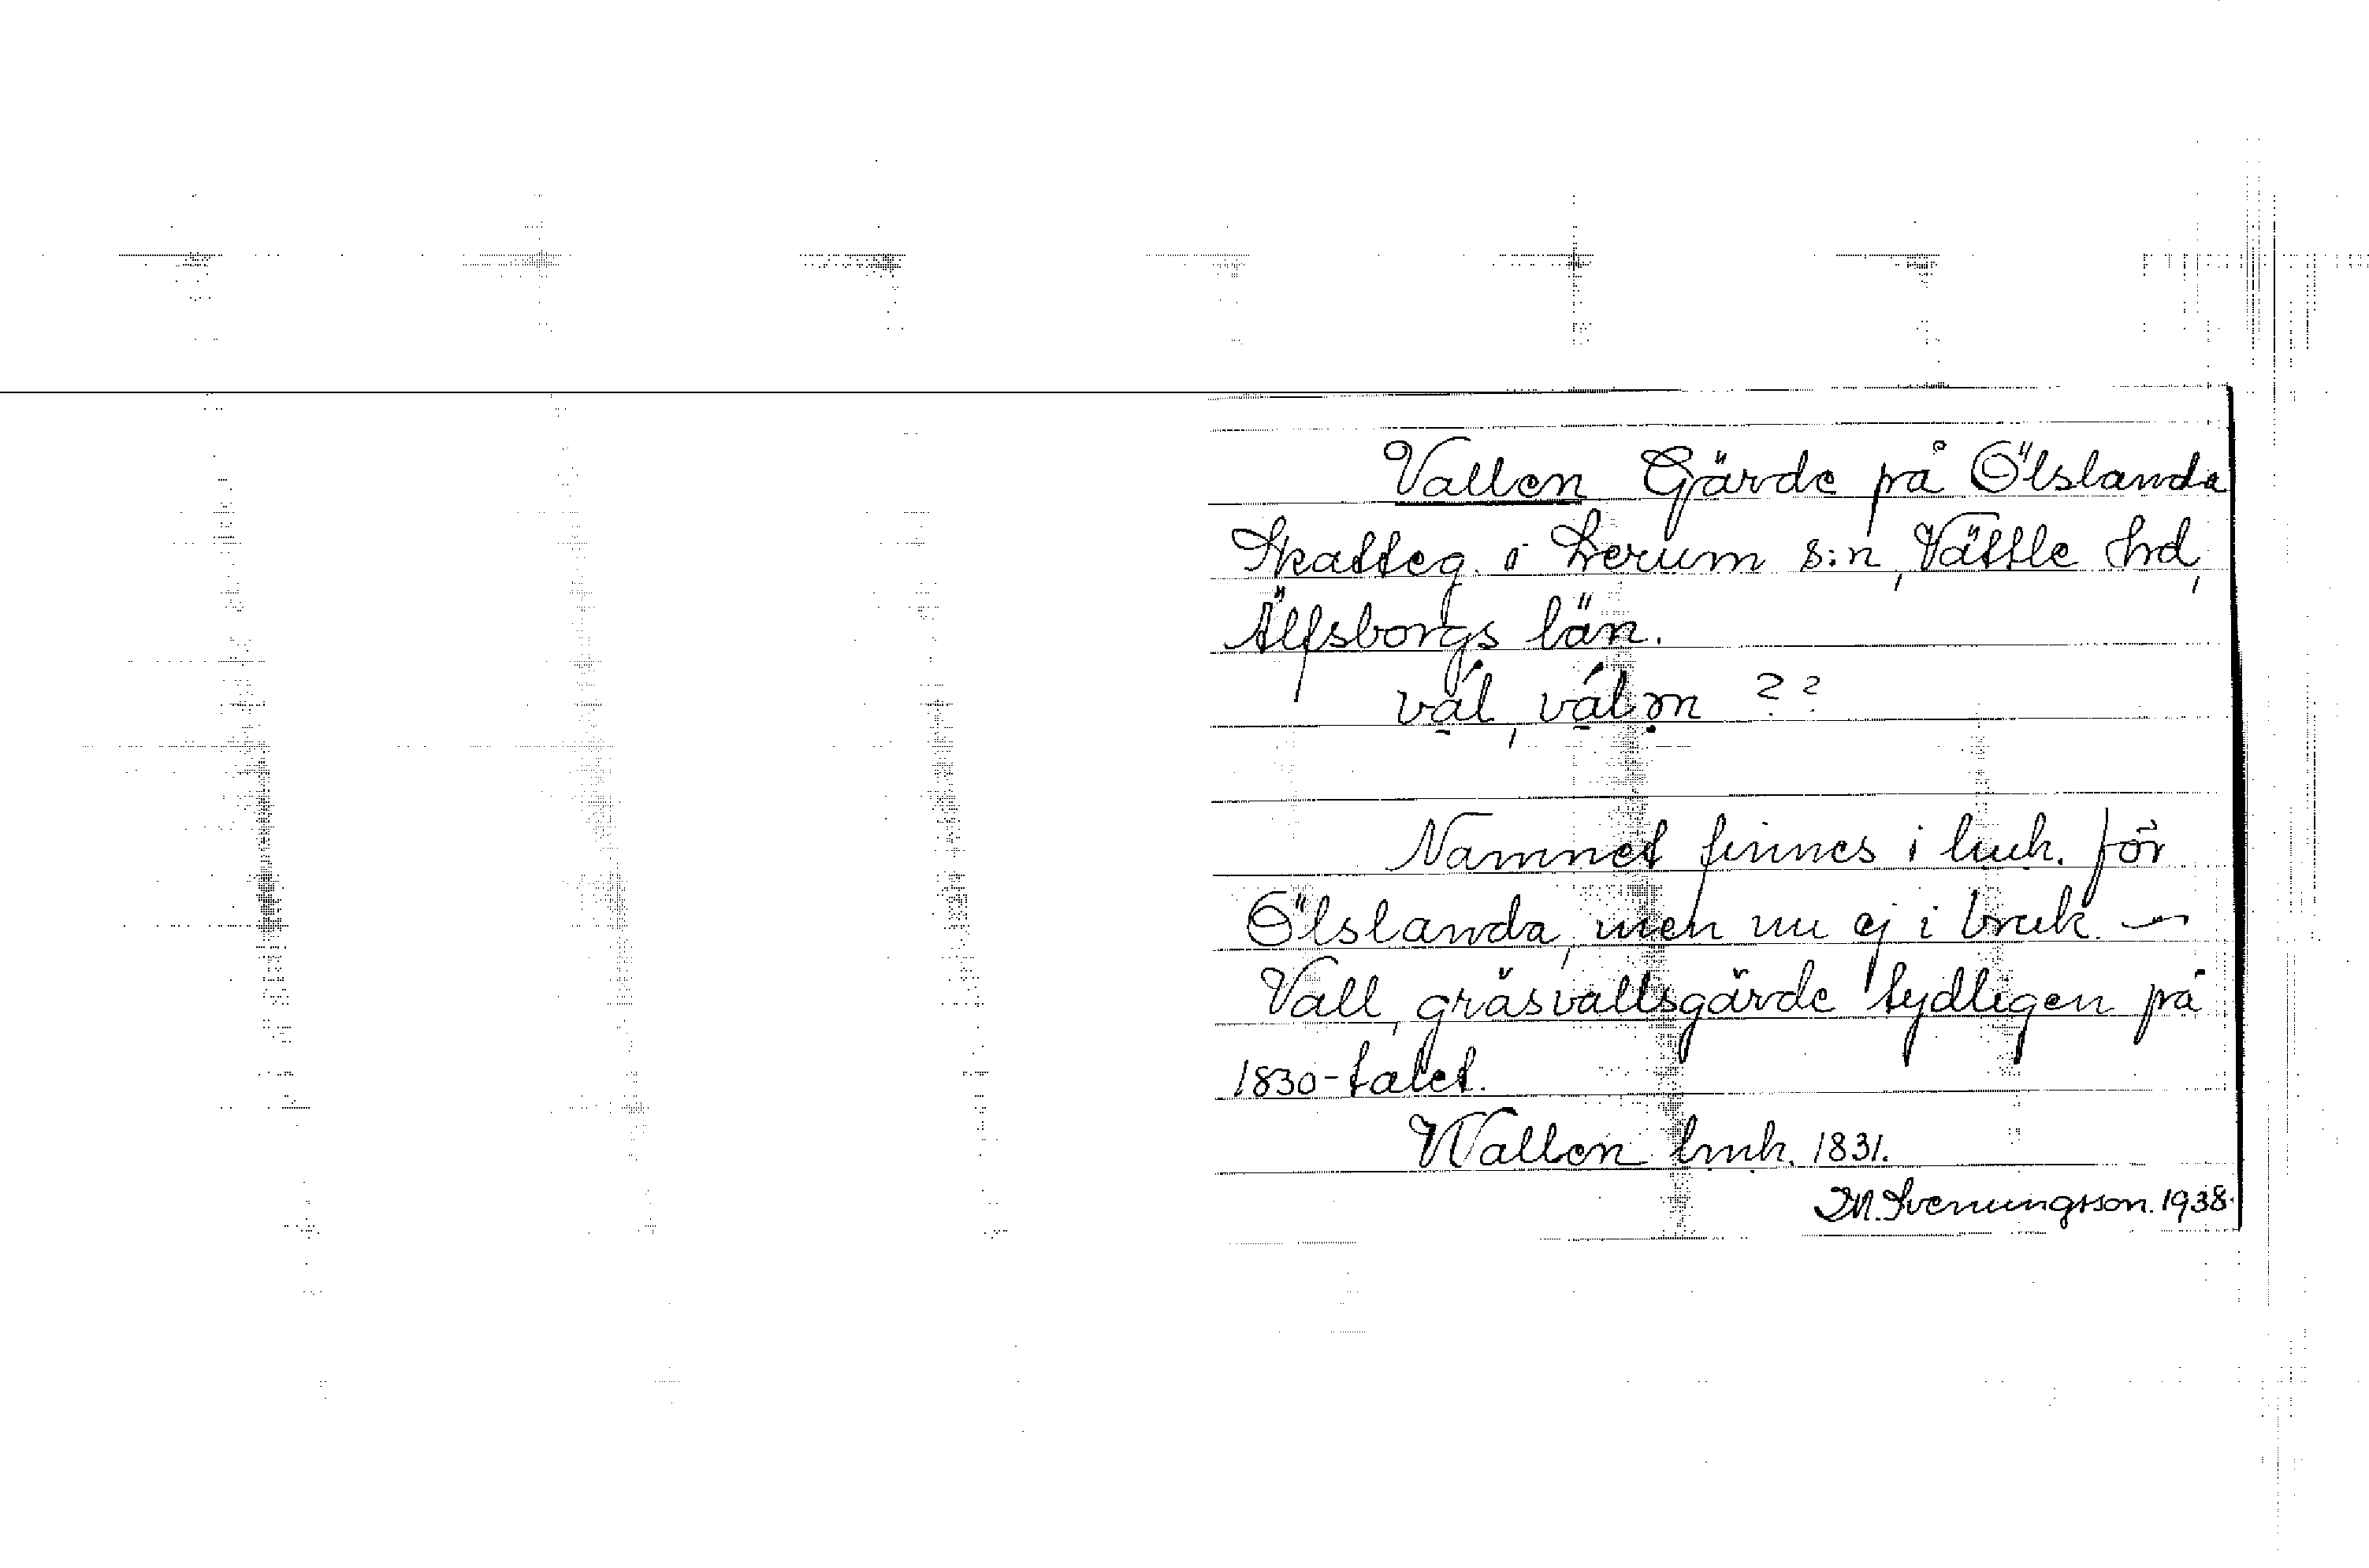 Vallen Gärde på Ölslanda
Skatteg. i Lerum s:n, Vättle hd,
Älfsborgs län.
val, valən ??
Namnet finnes i lmh. för
Ölslanda, men nu ej i bruk. —
Vall, gräsvallsgärde tydligen på
1830-talet.
Wallen lmh. 1831.
M. Svenungsson. 1938.